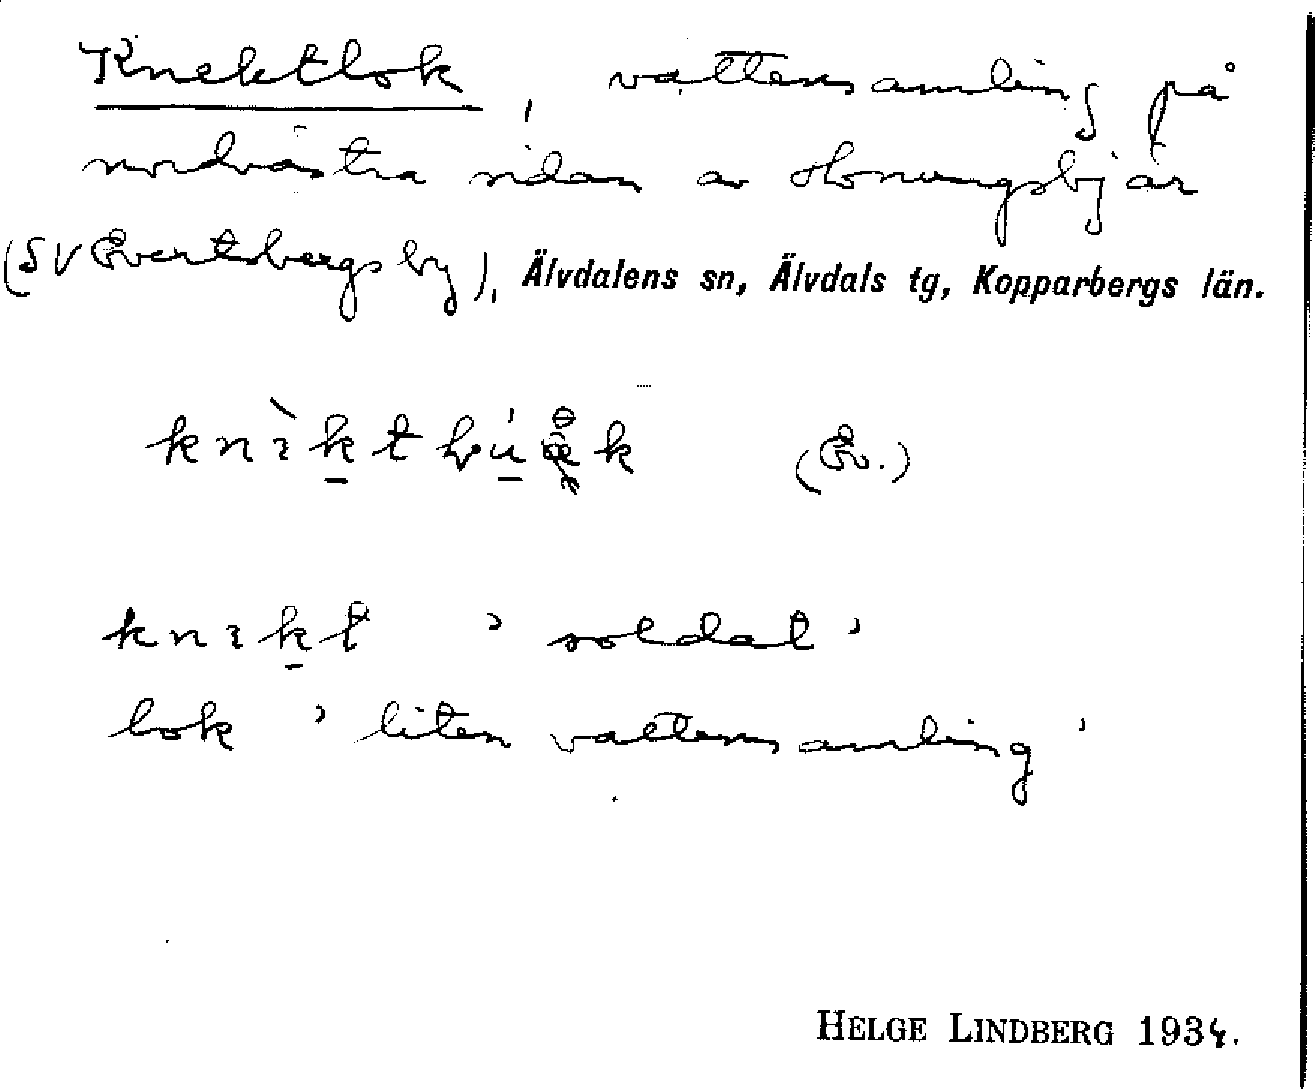 Knektlok, vattensamling på
nordvästra sidan av Honungsbjär
(SV Evertsbergs by), Älvdalens sn, Älvdals tg, Kopparbergs län.
(Ev.)
knıkt 'soldat'
lok 'liten vattensamling'
HELGE LINDBERG 1934.